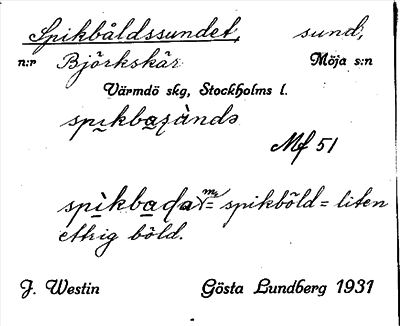 Spikbåldssundet, sund,
n:r Björkskär Möja s:n
Värmdö skg, Stockholms l.
Mf 51
spikböld = liten
etkig böld.
J. Westin Gösta Lundberg 1931